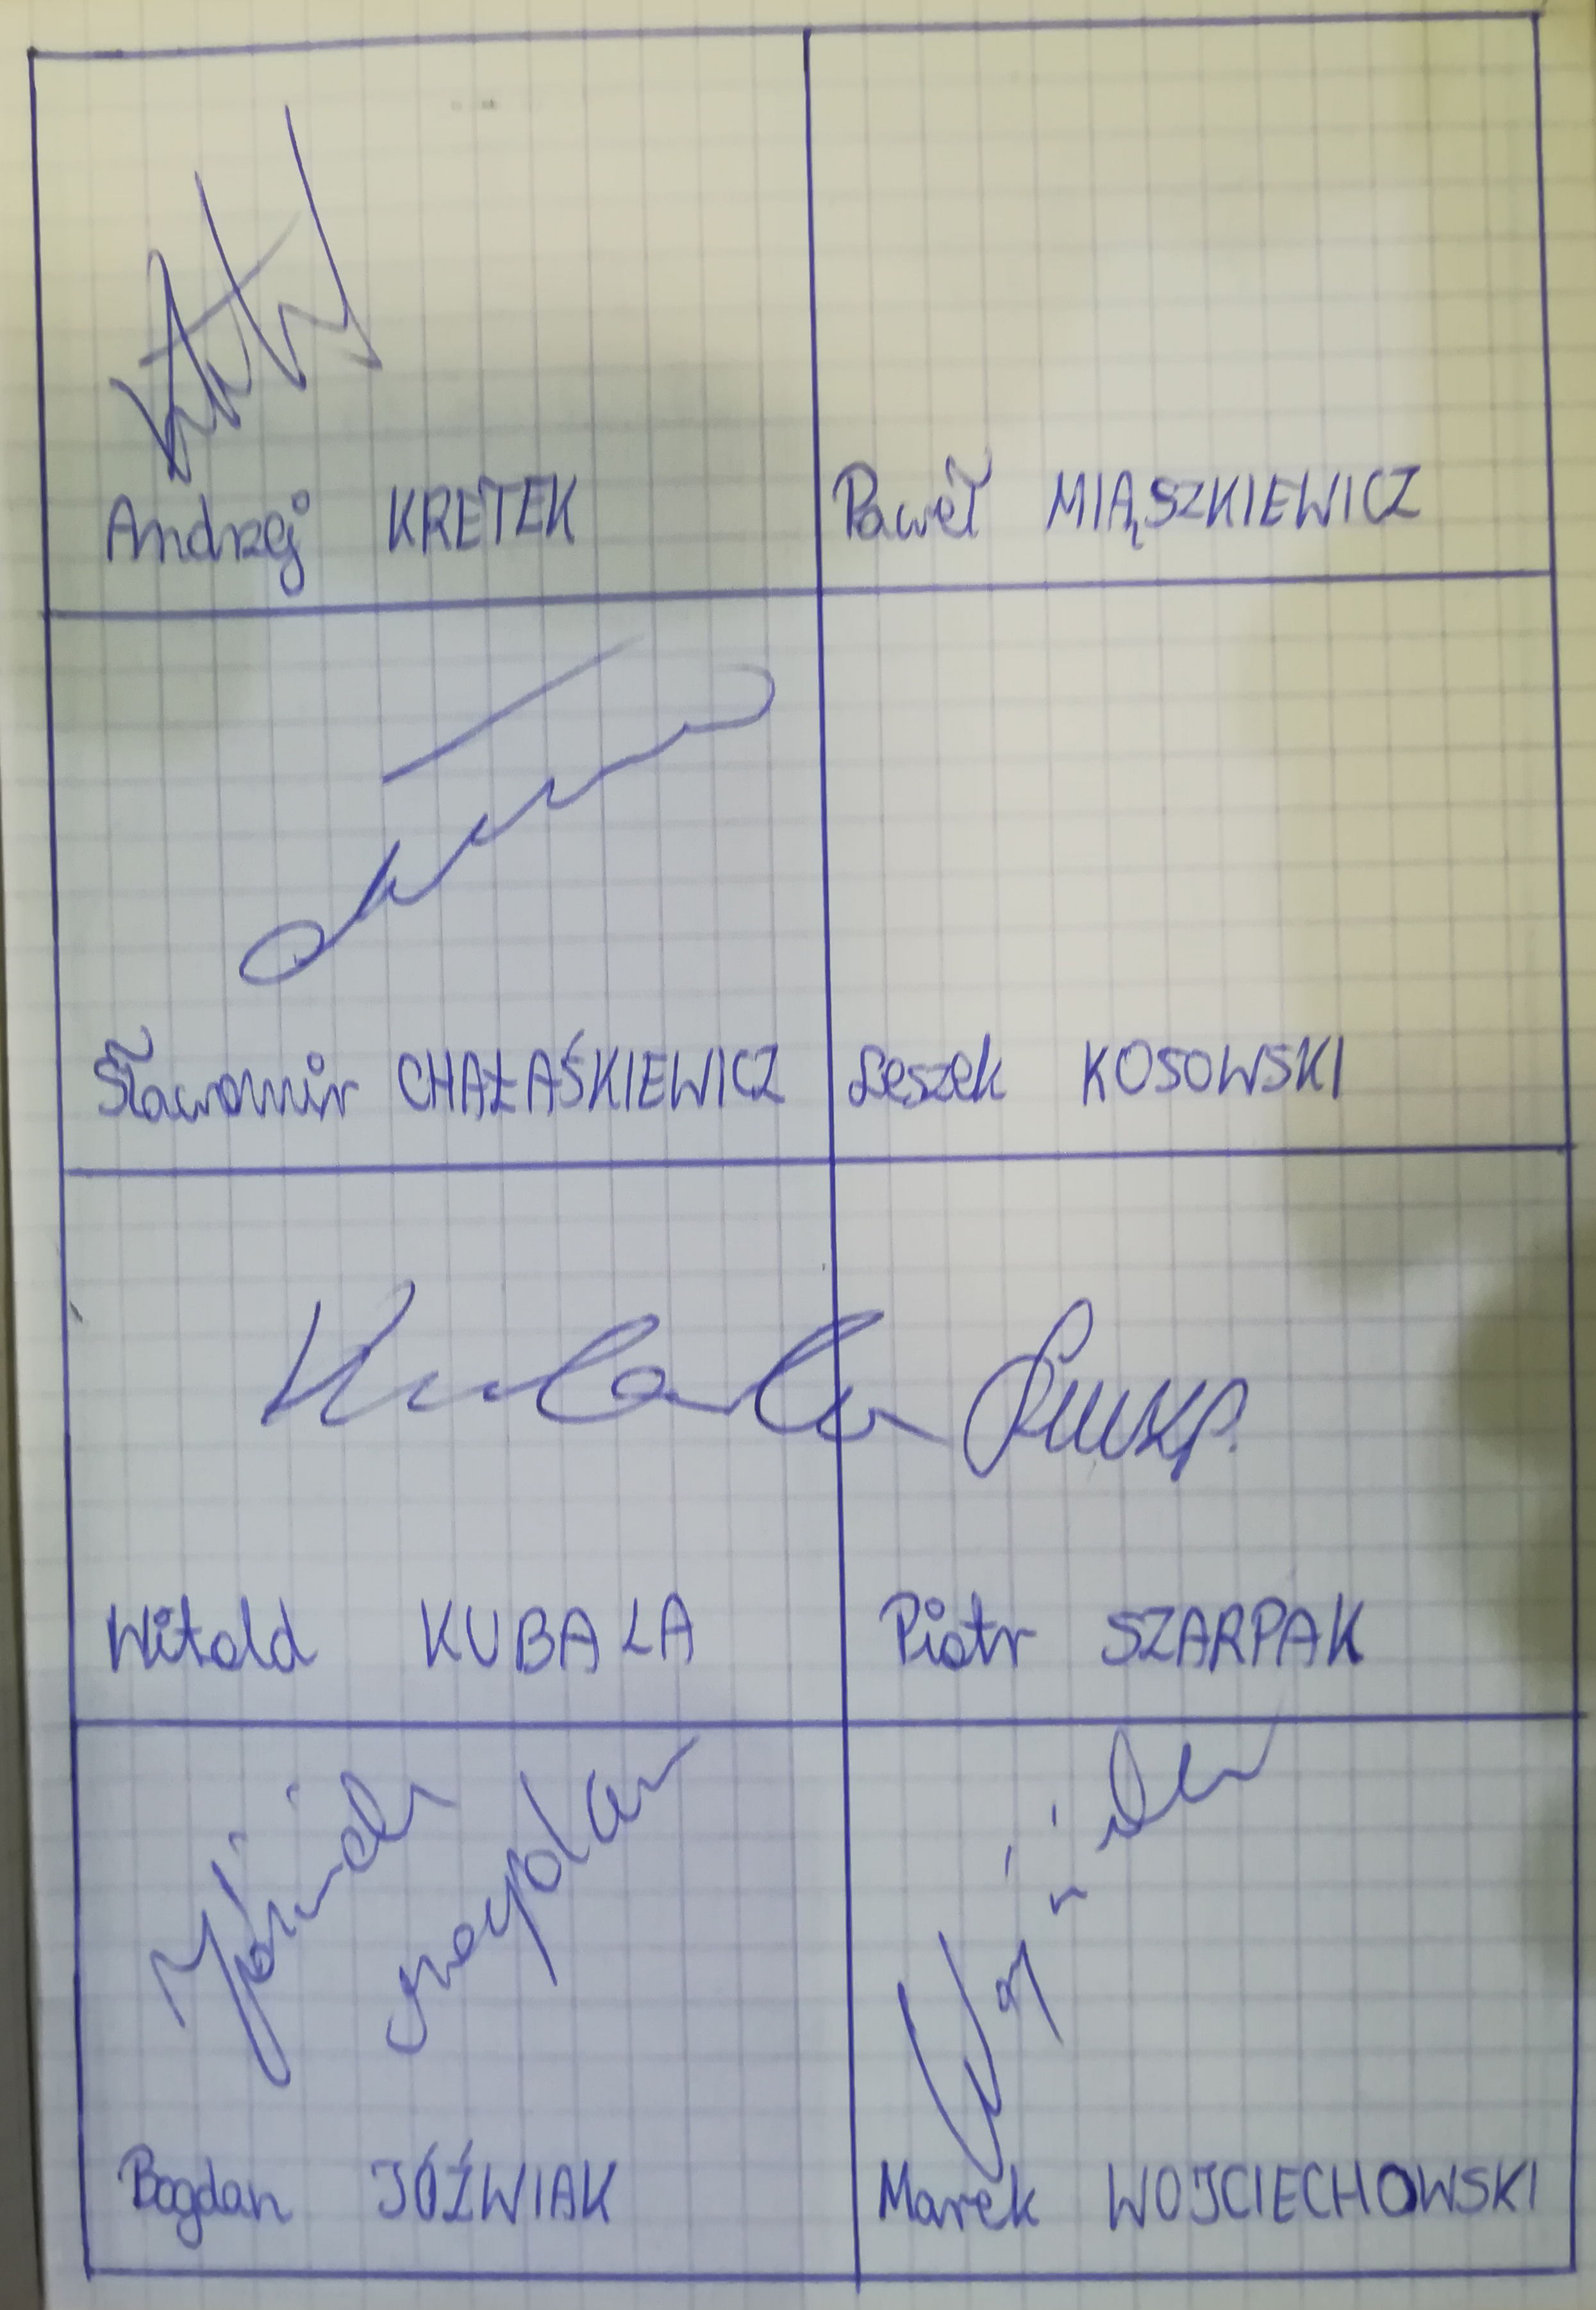 Andrzej KRETEK
Paweł MIĄSZKIEWICZ
Sławomir CHAŁAŚKIEWICZ
Leszek KOSOWSKI
Kubala
Witold KUBALA
Piotr SZARPAK
Jóźwiak
Bogdan
Bogdan JÓŹWIAK
Marek WOJCIECHOWSKI